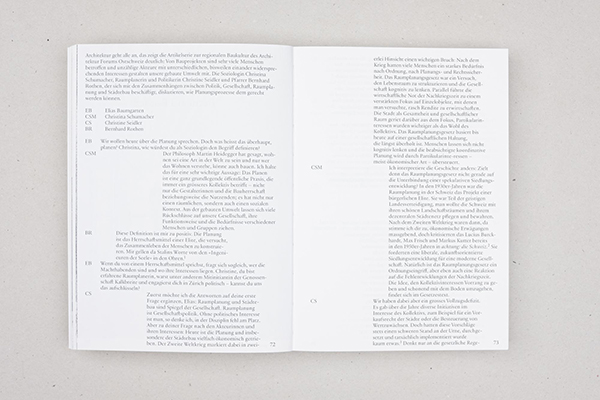 Architektur geht alle an, das zeigt die Artikelserie zur regionalen Baukultur des Archi-
tektur Forums Ostschweiz deutlich: Von Bauprojekten sind sehr viele Menschen
betroffen und unzählige Akteure mit unterschiedlichen, bisweilen einander widerspre-
chenden Interessen gestalten unsere gebaute Umwelt mit. Die Soziologin Christina
Schumacher, Raumplanerin und Politikerin Christine Seidler und Pfarrer Bernhard
Rothen, der sich mit den Zusammenhängen zwischen Politik, Gesellschaft, Raumpla-
nung und Städtebau beschäftigt, diskutieren, wie Planungsprozesse dem gerecht
werden können.
EB Elias Baumgarten
CSM Christina Schumacher
CS Christine Seidler
BR Bernhard Rothen
EB Wir wollen heute über die Planung sprechen. Doch was heisst das überhaupt,
planen? Christina, wie würdest du als Soziologin den Begriff definieren?
CSM Der Philosoph Martin Heidegger hat gesagt, woh-
nen sei eine Art in der Welt zu sein und nur wer
das Wohnen verstehe, könne auch bauen. Ich halte
das für eine sehr wichtige Aussage: Das Planen
ist eine ganz grundlegende öffentliche Praxis, die
immer ein grösseres Kollektiv betrifft – nicht
nur die Gestalterinnen und die Bauherrschaft
beziehungsweise die Nutzenden; es hat nicht nur
einen räumlichen, sondern auch einen sozialen
Kontext. Aus der gebauten Umwelt lassen sich viele
Rückschlüsse auf unsere Gesellschaft, ihre
Funktionsweise und die Bedürfnisse verschiedener
Menschen und Gruppen ziehen.
BR Diese Definition ist mir zu positiv. Die Planung
ist der Herrschaftsmittel einer Elite, die versucht,
das Zusammenleben der Menschen zu konstruie-
ren. Mir gefallen da Stalins Worte von den «Ingeni-
euren der Seele» in den Ohren.
EB Wenn du von einem Herrschaftsmittel sprichst, fragt sich sogleich, wer die
Machthabenden sind und wo ihre Interessen liegen. Christine, du bist
erfahrene Raumplanerin, warst unter anderem Mitinitiantin der Genossen-
schaft Kalkbreite und engagierst dich in Zürich politisch – kannst du uns
das aufschlüsseln?
CS Zuerst möchte ich die Antworten auf deine erste
Frage ergänzen, Elias: Raumplanung und Städte-
bau sind Spiegel der Gesellschaft. Raumplanung
ist Gesellschaftspolitik. Ohne politisches Interesse
ist man, so denke ich, in der Disziplin fehl am Platz.
Aber zu deiner Frage nach den Akteurinnen und
ihren Interessen: Heute ist die Planung und insbe-
sondere der Städtebau vielfach ökonomisch getrie-
ben. Der Zweite Weltkrieg markiert dabei in zwei-
72
erlei Hinsicht einen wichtigen Bruch: Nach dem
Krieg hatten viele Menschen ein starkes Bedürfnis
nach Ordnung, nach Planungs- und Rechtssicher-
heit. Das Raumplanungsgesetz war ein Versuch,
den Lebensraum zu strukturieren und die Gesell-
schaft kognitiv zu lenken. Parallel führte die
wirtschaftliche Not der Nachkriegszeit zu einem
verstärkten Fokus auf Einzelobjekte, mit denen
man versuchte, rasch Rendite zu erwirtschaften.
Die Stadt als Gesamtheit und gesellschaftlicher
Raum geriet darüber aus dem Fokus, Partikularin-
teressen wurden wichtiger als das Wohl des
Kollektivs. Das Raumplanungsgesetz basiert bis
heute auf einer gesellschaftlichen Haltung,
die längst überholt ist: Menschen lassen sich nicht
kognitiv lenken und die beabsichtigte kontrollierte
Planung wird durch Partikularinteressen –
meist ökonomischer Art – übersteuert.
CSM Ich interpretiere die Geschichte anders: Zielt
denn das Raumplanungsgesetz nicht gerade auf
die Unterbindung einer spekulativen Siedlungs-
entwicklung? In den 1930er-Jahren war die
Raumplanung in der Schweiz das Projekt einer
bürgerlichen Elite. Sie war Teil der geistigen
Landesverteidigung, man wollte die Schweiz mit
ihren schönen Landschaftsräumen und ihrem
dezentralen Städtenetz pflegen und bewahren.
Nach dem Zweiten Weltkrieg waren dann, da
stimme ich dir zu, ökonomische Erwägungen
massgebend, doch kritisierten das Lucius Burck-
hardt, Max Frisch und Markus Kutter bereits
in den 1950er-Jahren in achtung: die Schweiz.¹ Sie
forderten eine liberale, zukunftsorientierte
Siedlungsentwicklung für eine moderne Gesell-
schaft. Natürlich ist das Raumplanungsgesetz ein
Ordnungseingriff, aber eben auch eine Reaktion
auf die Fehlentwicklungen der Nachkriegszeit.
Die Idee, den Kollektivinteressen Vorrang zu ge-
ben und schonend mit dem Boden umzugehen,
findet sich im Gesetzestext.
CS Wir haben dabei aber ein grosses Vollzugsdefizit.
Es gab über die Jahre diverse Initiativen im
Interesse des Kollektivs, zum Beispiel für ein Vor-
kaufsrecht der Städte oder die Besteuerung von
Wertzuwächsen. Doch hatten diese Vorschläge
meist einen schweren Stand an der Urne, durchge-
setzt und tatsächlich implementiert wurde
kaum etwas.² Denke nur an die gesetzliche Rege-
73